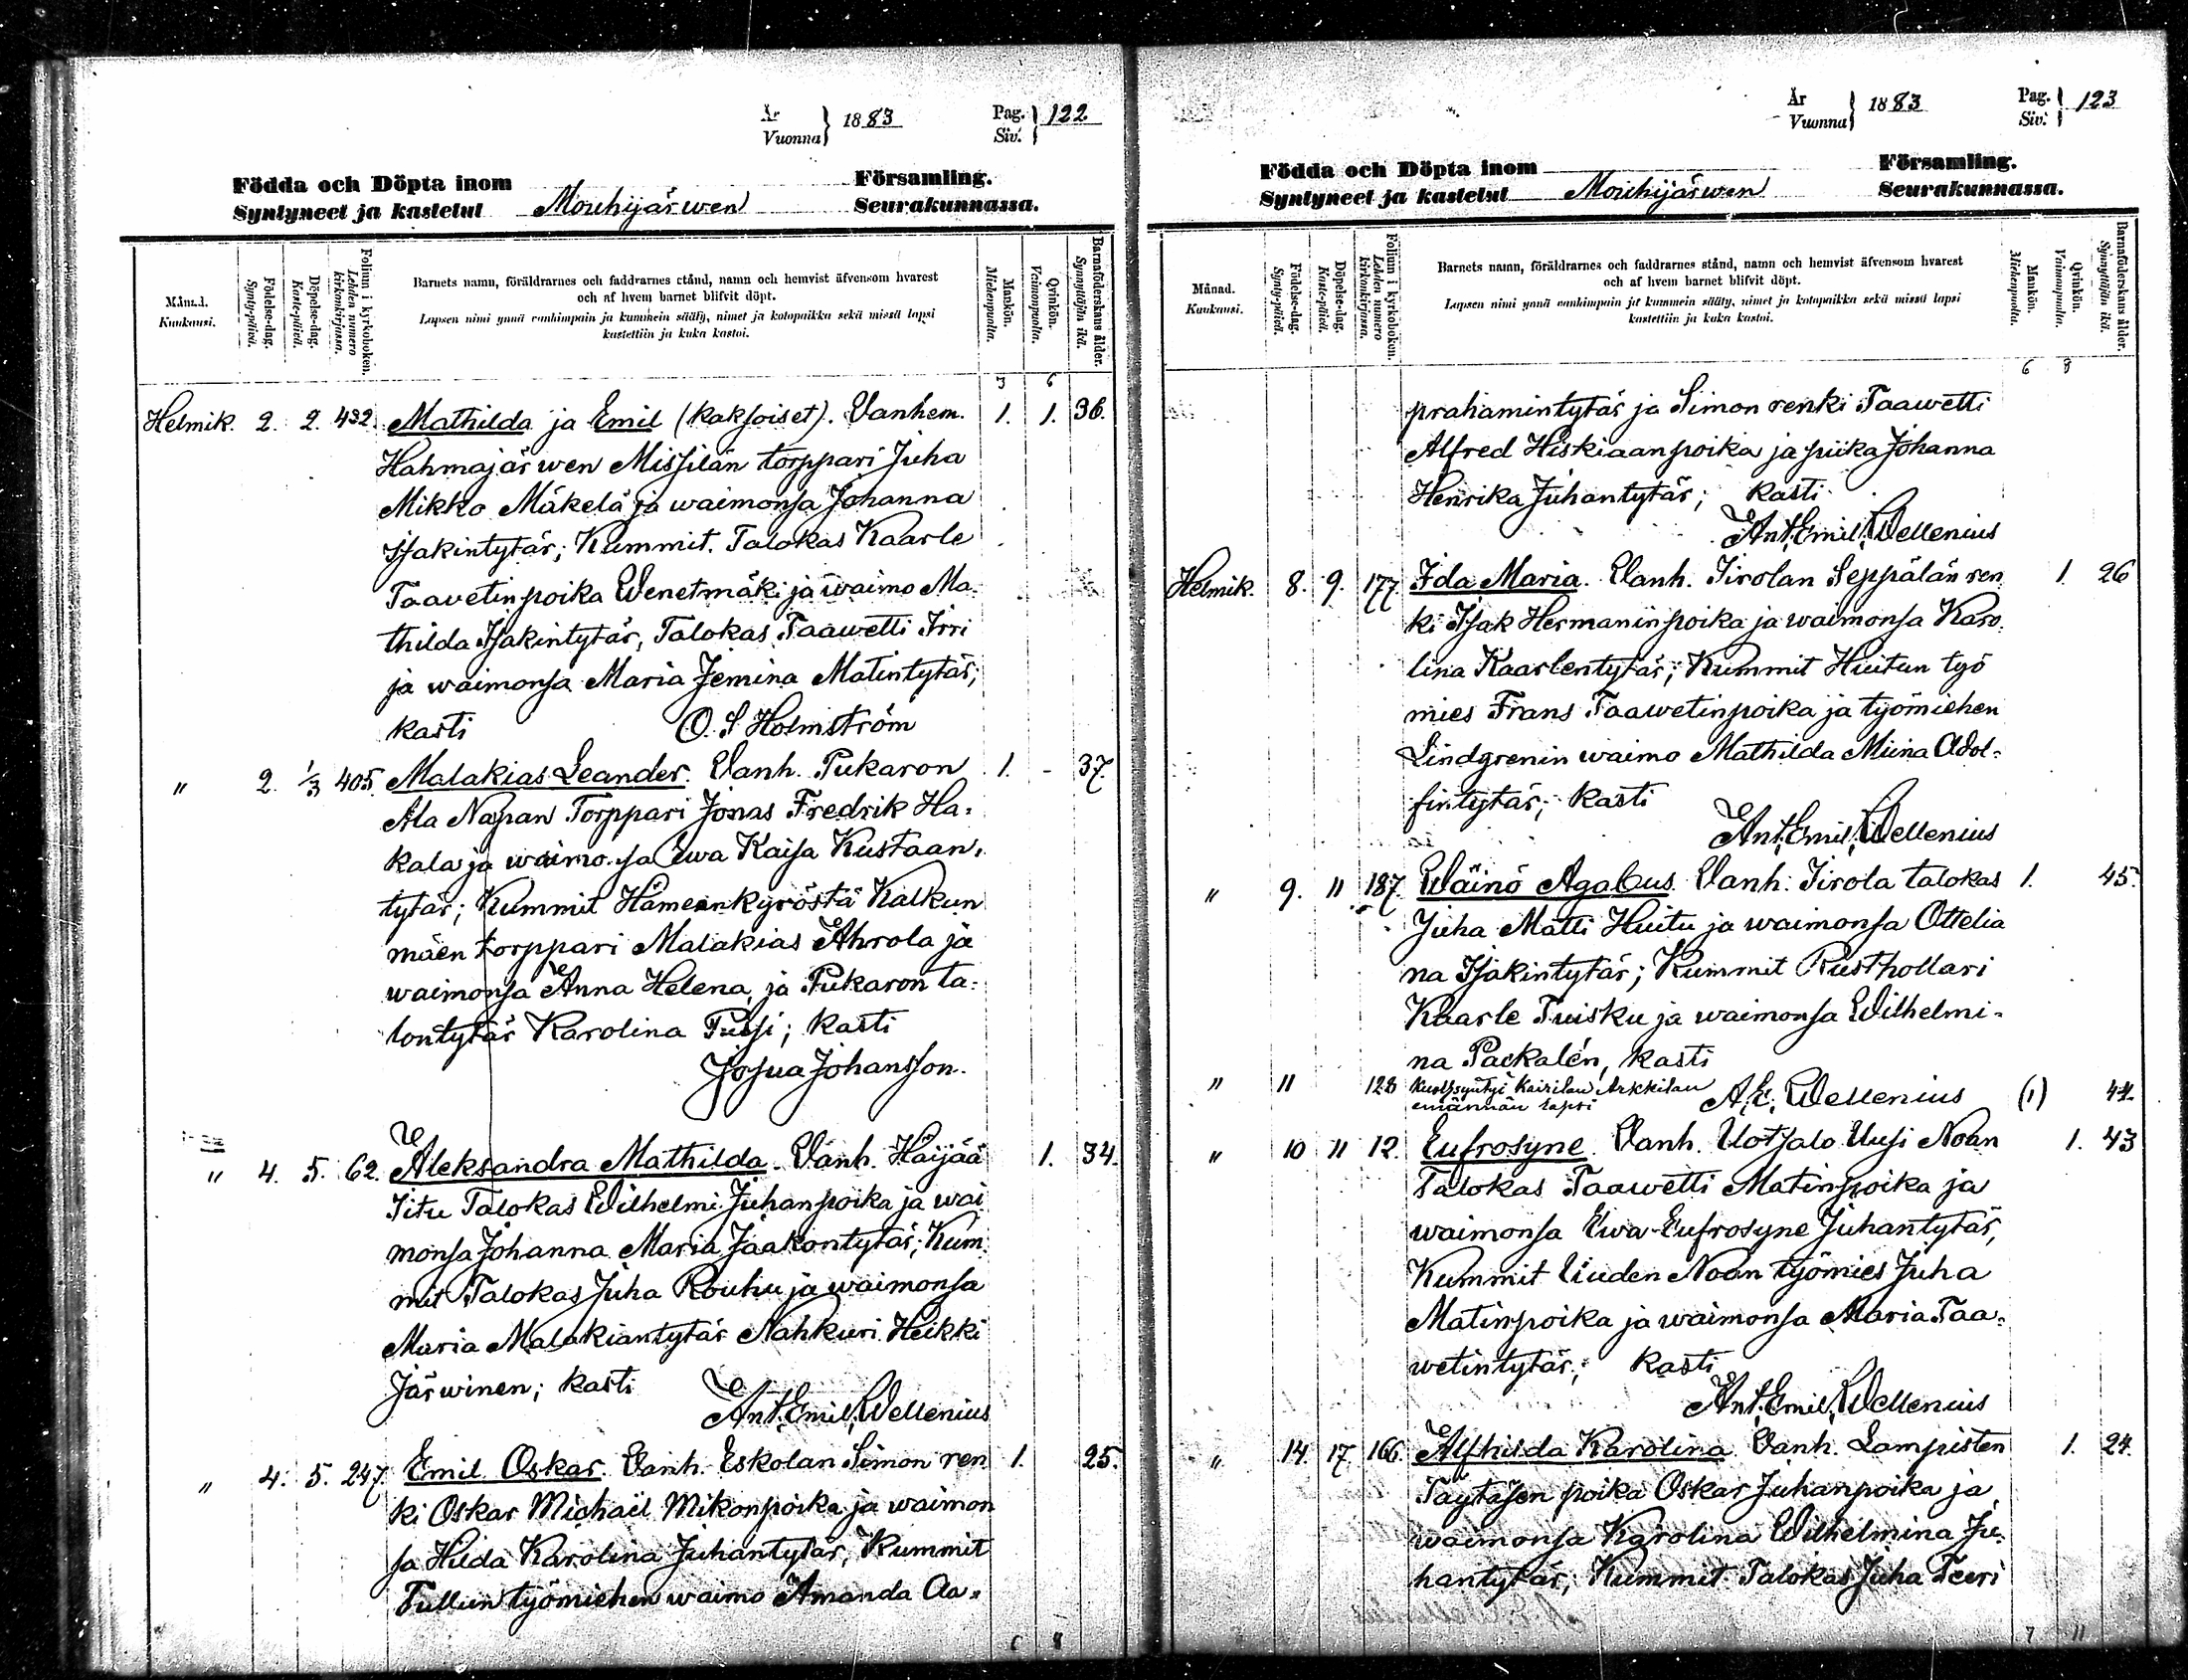 År
Vuonna } 1883
Pag.
Siv. } 122
Födda och Döpta inom Församling.
Syntyneet ja kastetut Mouhijärwen Seurakunnassa.
Månad.
Kuukausi.
Födelse-dag.
Synty-päivä.
Döpelse-dag.
Kaste-päivä.
Folium i kyrkoboken.
Lehden numero kirkonkirjassa.
Barnets namn, föräldrarnes och faddrarnes stånd, namn och hemvist äfvensom hvarest
och af hvem barnet blifvit döpt.
Lapsen nimi ynnä vanhimpain ja kummein sääty, nimet ja kotopaikka sekä missä lapsi
kastettiin ja kuka kastoi.
Mankön.
Miehenpuolta.
Qvinkön.
Vaimonpuolta.
Barnaföderskans ålder.
Synnyttäjän ikä.
3 6
Helmik. 2. 2. 432. Mathilda ja Emil (kaksoiset). Vanhem. 1. 1. 36.
Hahmajärwen Missilän torppari Juha
Mikko Mäkelä ja waimonsa Johanna
Isakintytär; Kummit. Talokas Kaarle
Taavetinpoika Wenetmäki ja waimo Ma-
thilda Isakintytär, Talokas Taawetti Irri
ja waimonsa Maria Jemina Matintytär;
kasti O. S Holmström
" 2. 1/3 405. Malakias Leander. Vanh. Pukaron 1. - 37.
Ala Napan Torppari Jonas Fredrik Ha-
kala ja waimonsa Ewa Kaisa Kustaan-
tytär; Kummit Hämeenkyröstä Kalkun
mäen torppari Malakias Ahrola ja
waimonsa Anna Helena, ja Pukaron ta-
lontytär Karolina Pussi; kasti
Josua Johansson.
" 4. 5. 62. Aleksandra Mathilda. Vanh. Häijää 1. 34.
Iitu Talokas Wilhelmi Juhanpoika ja wai
monsa Johanna Maria Jaakontytär; Kum-
mit Talokas Juha Rouhu ja waimonsa
Maria Malakiantytär Nahkuri Heikki
Järwinen; kasti
Ant. Emil. Wellenius
" 4. 5. 247. Emil Oskar. Vanh. Eskolan Simon ren 1. 25.
ki Oskar Michaël Mikonpoika ja waimon
sa Hilda Karolina Juhantytär, Kummit
Tullin työmiehen waimo Amanda Aa-
6 8
År
Vuonna } 1883
Pag.
Siv. } 123
Födda och Döpta inom Församling.
Syntyneet ja kastetut Mouhijärwen Seurakunnassa.
Månad.
Kuukausi.
Födelse-dag.
Synty-päivä.
Döpelse-dag.
Kaste-päivä.
Folium i kyrkoboken.
Lehden numero kirkonkirjassa.
Barnets namn, föräldrarnes och faddrarnes stånd, namn och hemvist äfvensom hvarest
och af hvem barnet blifvit döpt.
Lapsen nimi ynnä vanhimpain ja kummein sääty, nimet ja kotopaikka sekä missä lapsi
kastettiin ja kuka kastoi.
Mankön.
Miehenpuolta.
Qvinkön.
Vaimonpuolta.
Barnaföderskans ålder.
Synnyttäjän ikä.
6 8
prahamintytär ja Simon renki Taawetti
Alfred Hiskiaanpoika ja piika Johanna
Henrika Juhantytär; kasti
Ant. Emil. Wellenius
Helmik. 8. 9. 177. Ida Maria. Vanh. Iirolan Seppälän ren 1. 26
ki Isak Hermaninpoika ja waimonsa Karo-
lina Kaarlentytär; Kummit Huitun työ
mies Frans Taawetinpoika ja työmiehen
Lindgrenin waimo Mathilda Miina Adol-
fintytär; kasti
Ant. Emil. Wellenius
" 9. 11 187. Wäinö Agabus. Vanh. Iirola talokas 1. 45.
Juha Matti Huitu ja waimonsa Ottelia
na Isakintytär; Kummit Rusthollari
Kaarle Tuisku ja waimonsa Wilhelmi-
na Packalén, kasti
" 11 128 Kuolfsyntyi Kairilan Arkkilan
emännän lapsi A. E. Wellenius (1) 44.
" 10 11 12. Eufrosyne. Vanh. Uotsalo Uusi Noan 1. 43
Talokas Taawetti Matinpoika ja
waimonsa Ewa Eufrosyne Juhantytär,
Kummit Uuden Noan työmies Juha
Matinpoika ja waimonsa Maria Taa-
wetintytär; kasti
Ant. Emil. Wellenius
" 14. 17. 166. Alfhilda Karolina. Vanh. Lampisten 1. 24.
Taytasen poika Oskar Juhanpoika ja
waimonsa Karolina Wilhelmina Ju-
hantytär; Kummit Talokas Juha Teeri
7 11